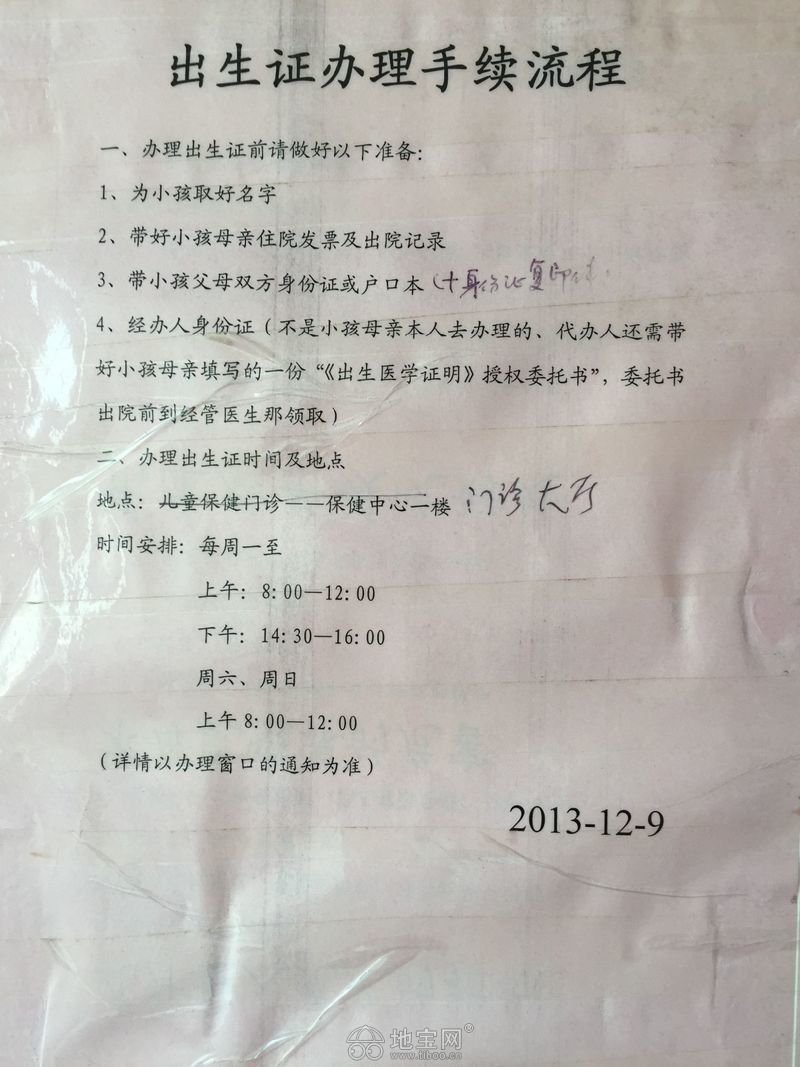 出生证办理手续流程
一、办理出生证前请做好以下准备：
1、为小孩取好名字
2、带好小孩母亲住院发票及出院记录
3、带小孩父母双方身份证或户口本（十身份证复印件
4、经办人身份证（不是小孩母亲本人去办理的、代办人还需带
好小孩母亲填写的一份“《出生医学证明》授权委托书”，委托书
出院前到经管医生那领取）
二、办理出生证时间及地点
地点：儿童保健门诊——保健中心一楼 门诊大厅
时间安排：每周一至
上午：8:00—12:00
下午：14:30—16:00
周六、周日
上午 8:00—12:00
（详情以办理窗口的通知为准）
2013-12-9
地宝网®
www.tiboo.cn